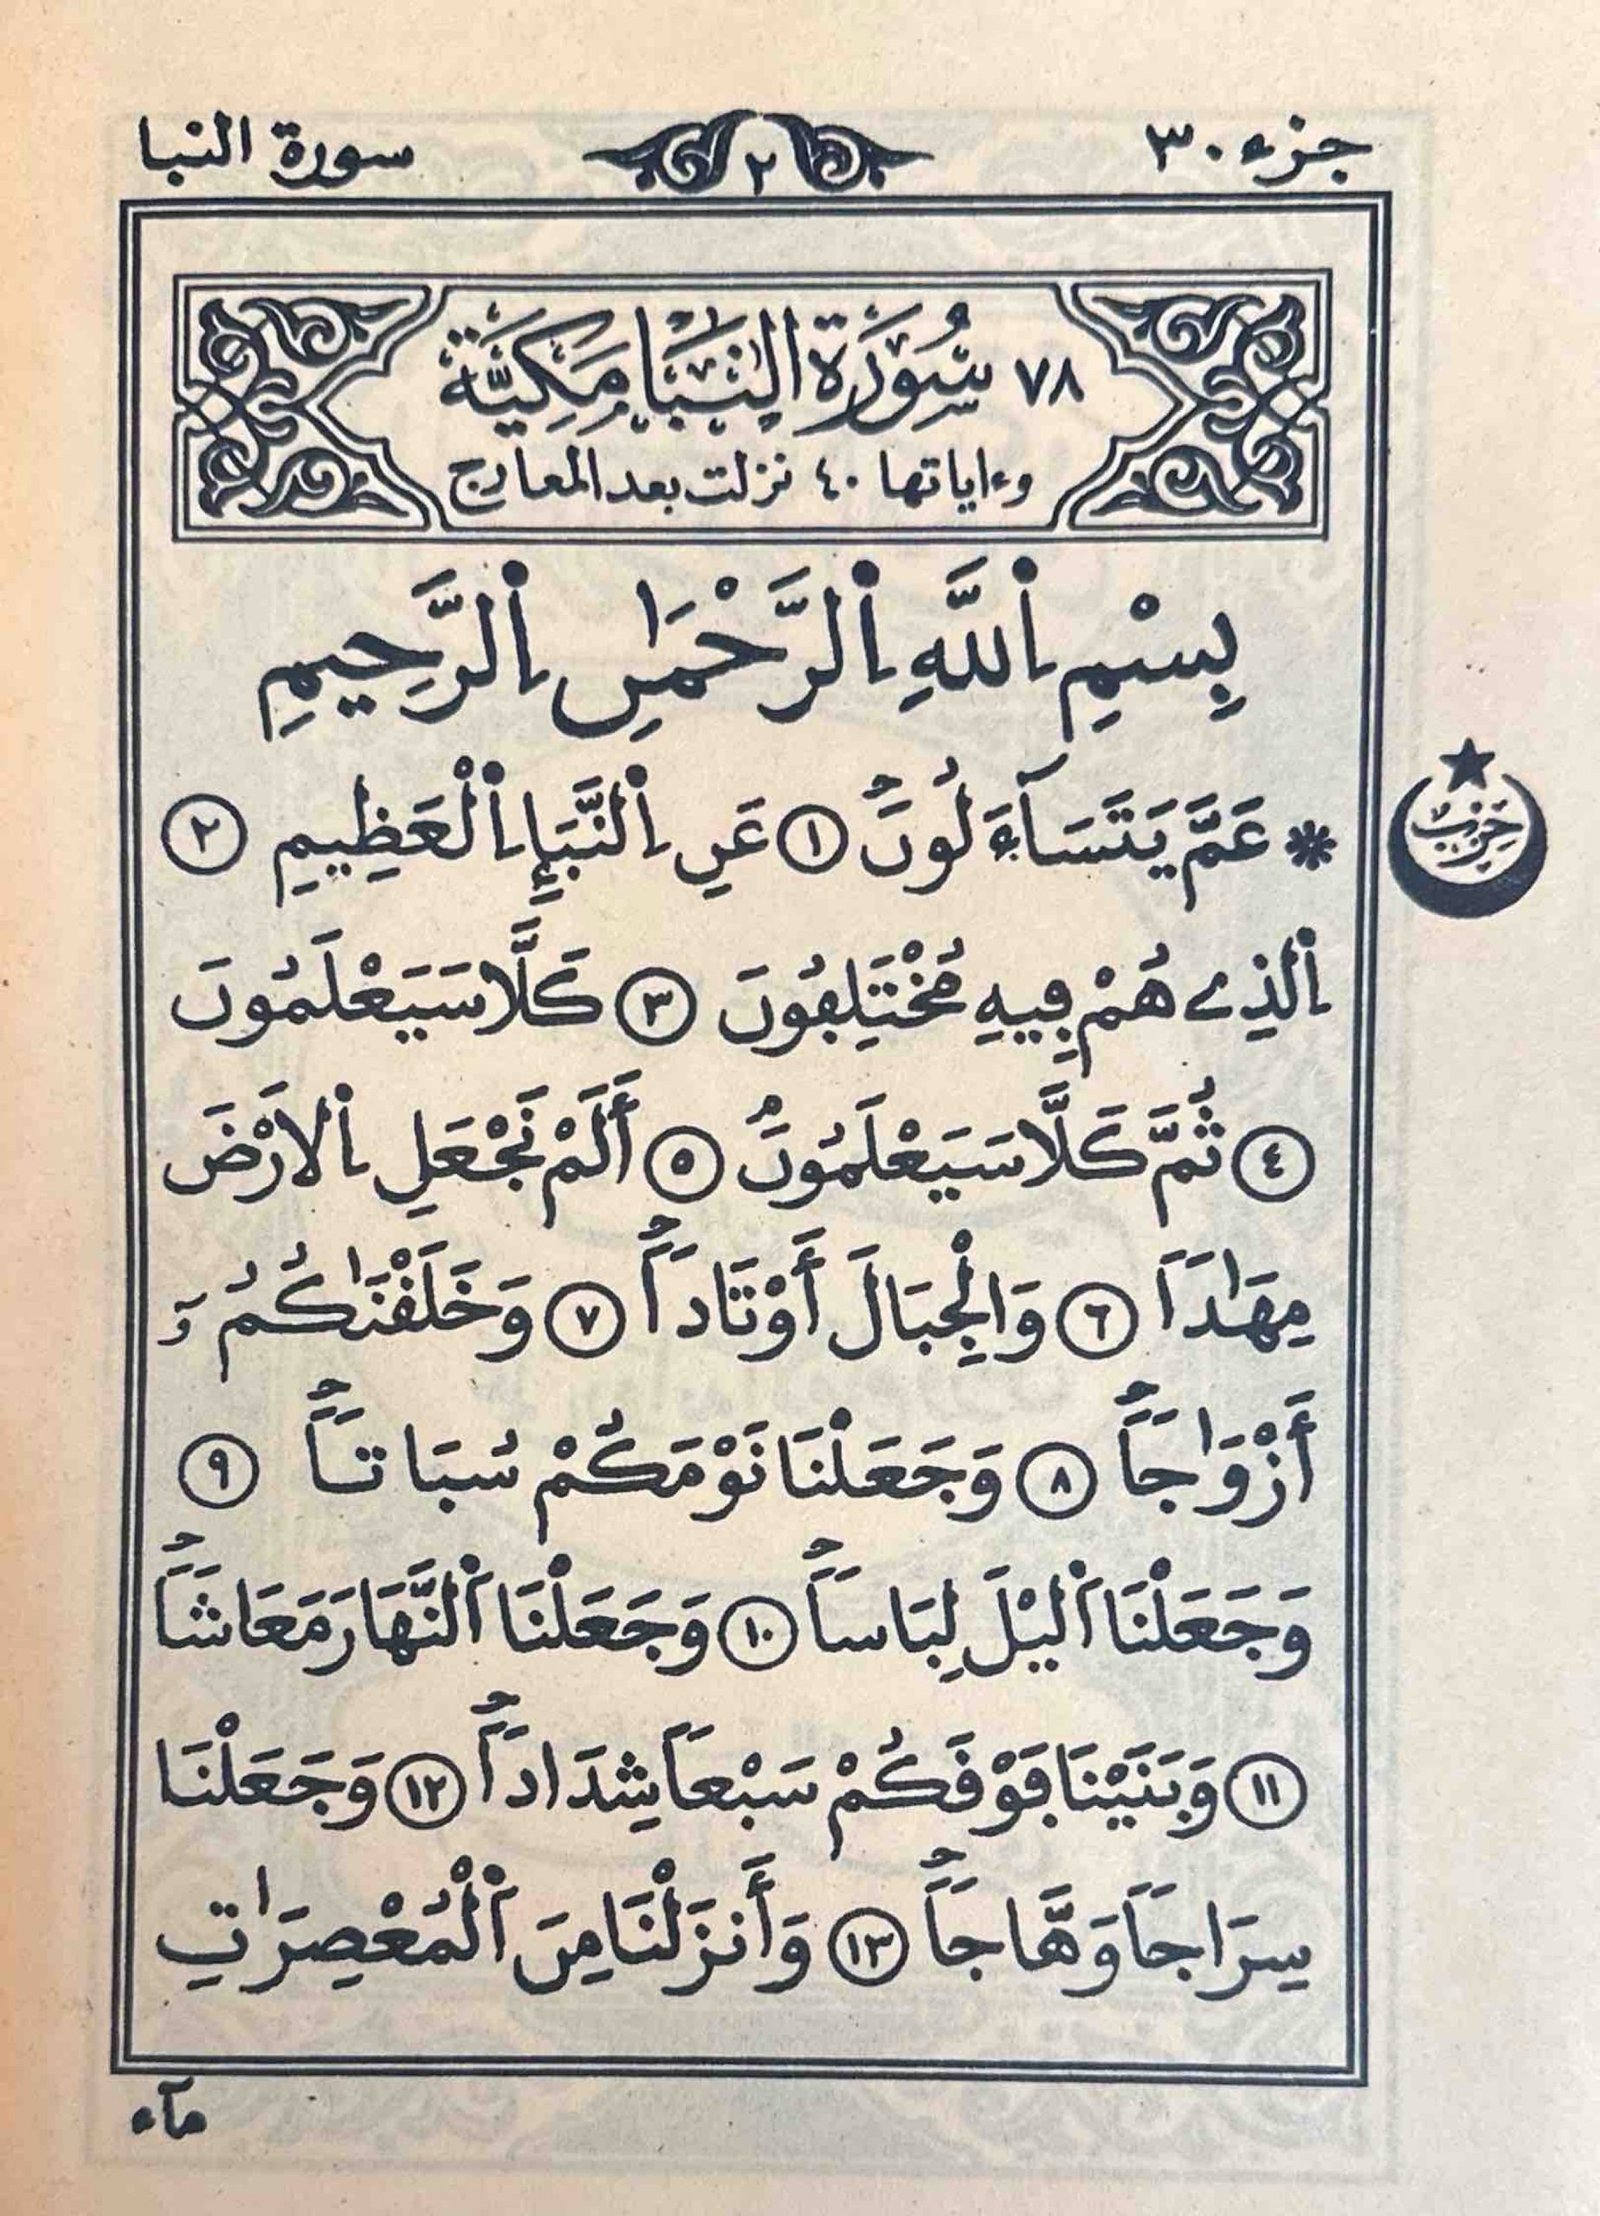 جزء ٣٠
٢
سورة النبا
٧٨ سُورَةُ النَّبَإِ مَكِّيَّة
وءاياتها ٤٠ نزلت بعد المعارج
بِسْمِ اِ۬للَّهِ اِ۬لرَّحْمَٰنِ اِ۬لرَّحِيمِ
* عَمَّ يَتَسَآءَلُونَۖ ١ عَنِ اِ۬لنَّبَإِ اِ۬لْعَظِيمِ ٢
حزب
اِ۬لذِے هُمْ فِيهِ مُخْتَلِفُونَ ٣ كَلَّا سَيَعْلَمُونَ
٤ ثُمَّ كَلَّا سَيَعْلَمُونَۖ ٥ أَلَمْ نَجْعَلِ اِ۬لَارْضَ
مِهَٰداٗ ٦ وَالْجِبَالَ أَوْتَاداٗۖ ٧ وَخَلَقْنَٰكُمُۥٓ
أَزْوَٰجاٗۖ ٨ وَجَعَلْنَا نَوْمَكُمْ سُبَاتاٗۖ ٩
وَجَعَلْنَا اَ۬ليْلَ لِبَاساٗۖ ١٠ وَجَعَلْنَا اَ۬لنَّهَارَ مَعَاشاٗۖ
١١ وَبَنَيْنَا فَوْقَكُمْ سَبْعاٗ شِدَاداٗۖ ١٢ وَجَعَلْنَا
سِرَاجاٗ وَهَّاجاٗۖ ١٣ وَأَنزَلْنَا مِنَ اَ۬لْمُعْصِرَٰتِ
مآء